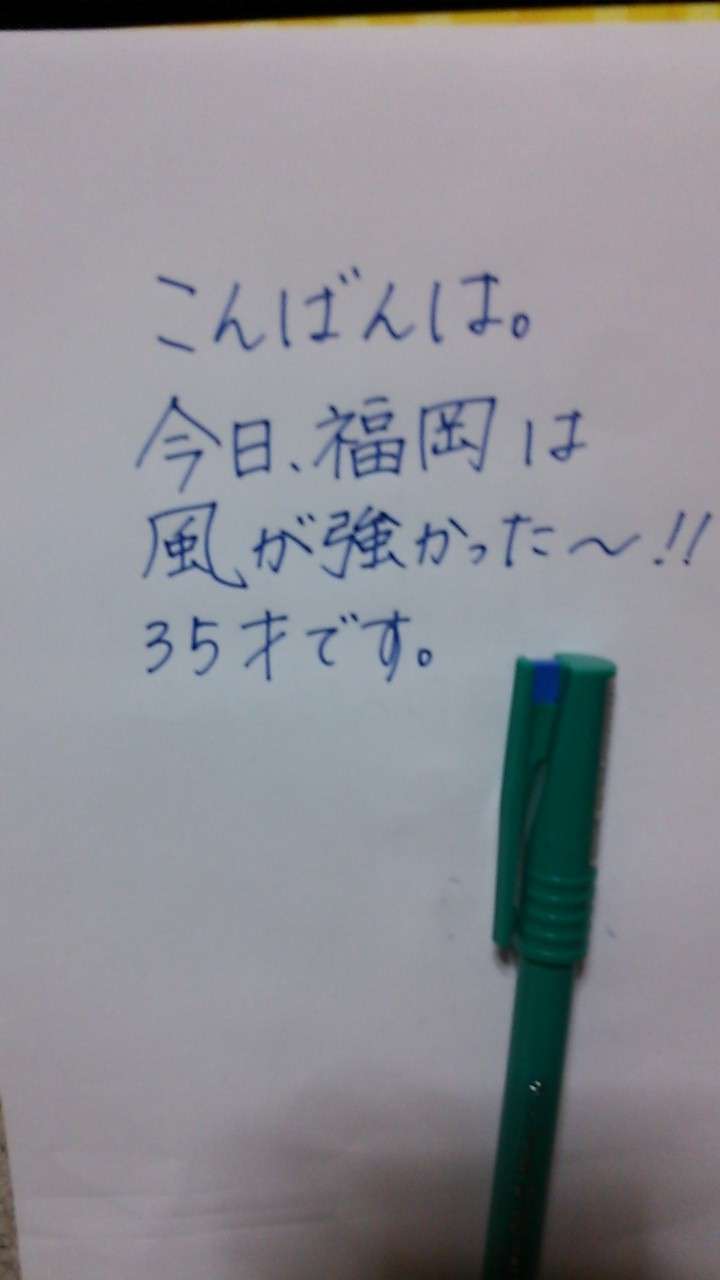 こんばんは。
今日、福岡は
風が強かった～!!
35才です。